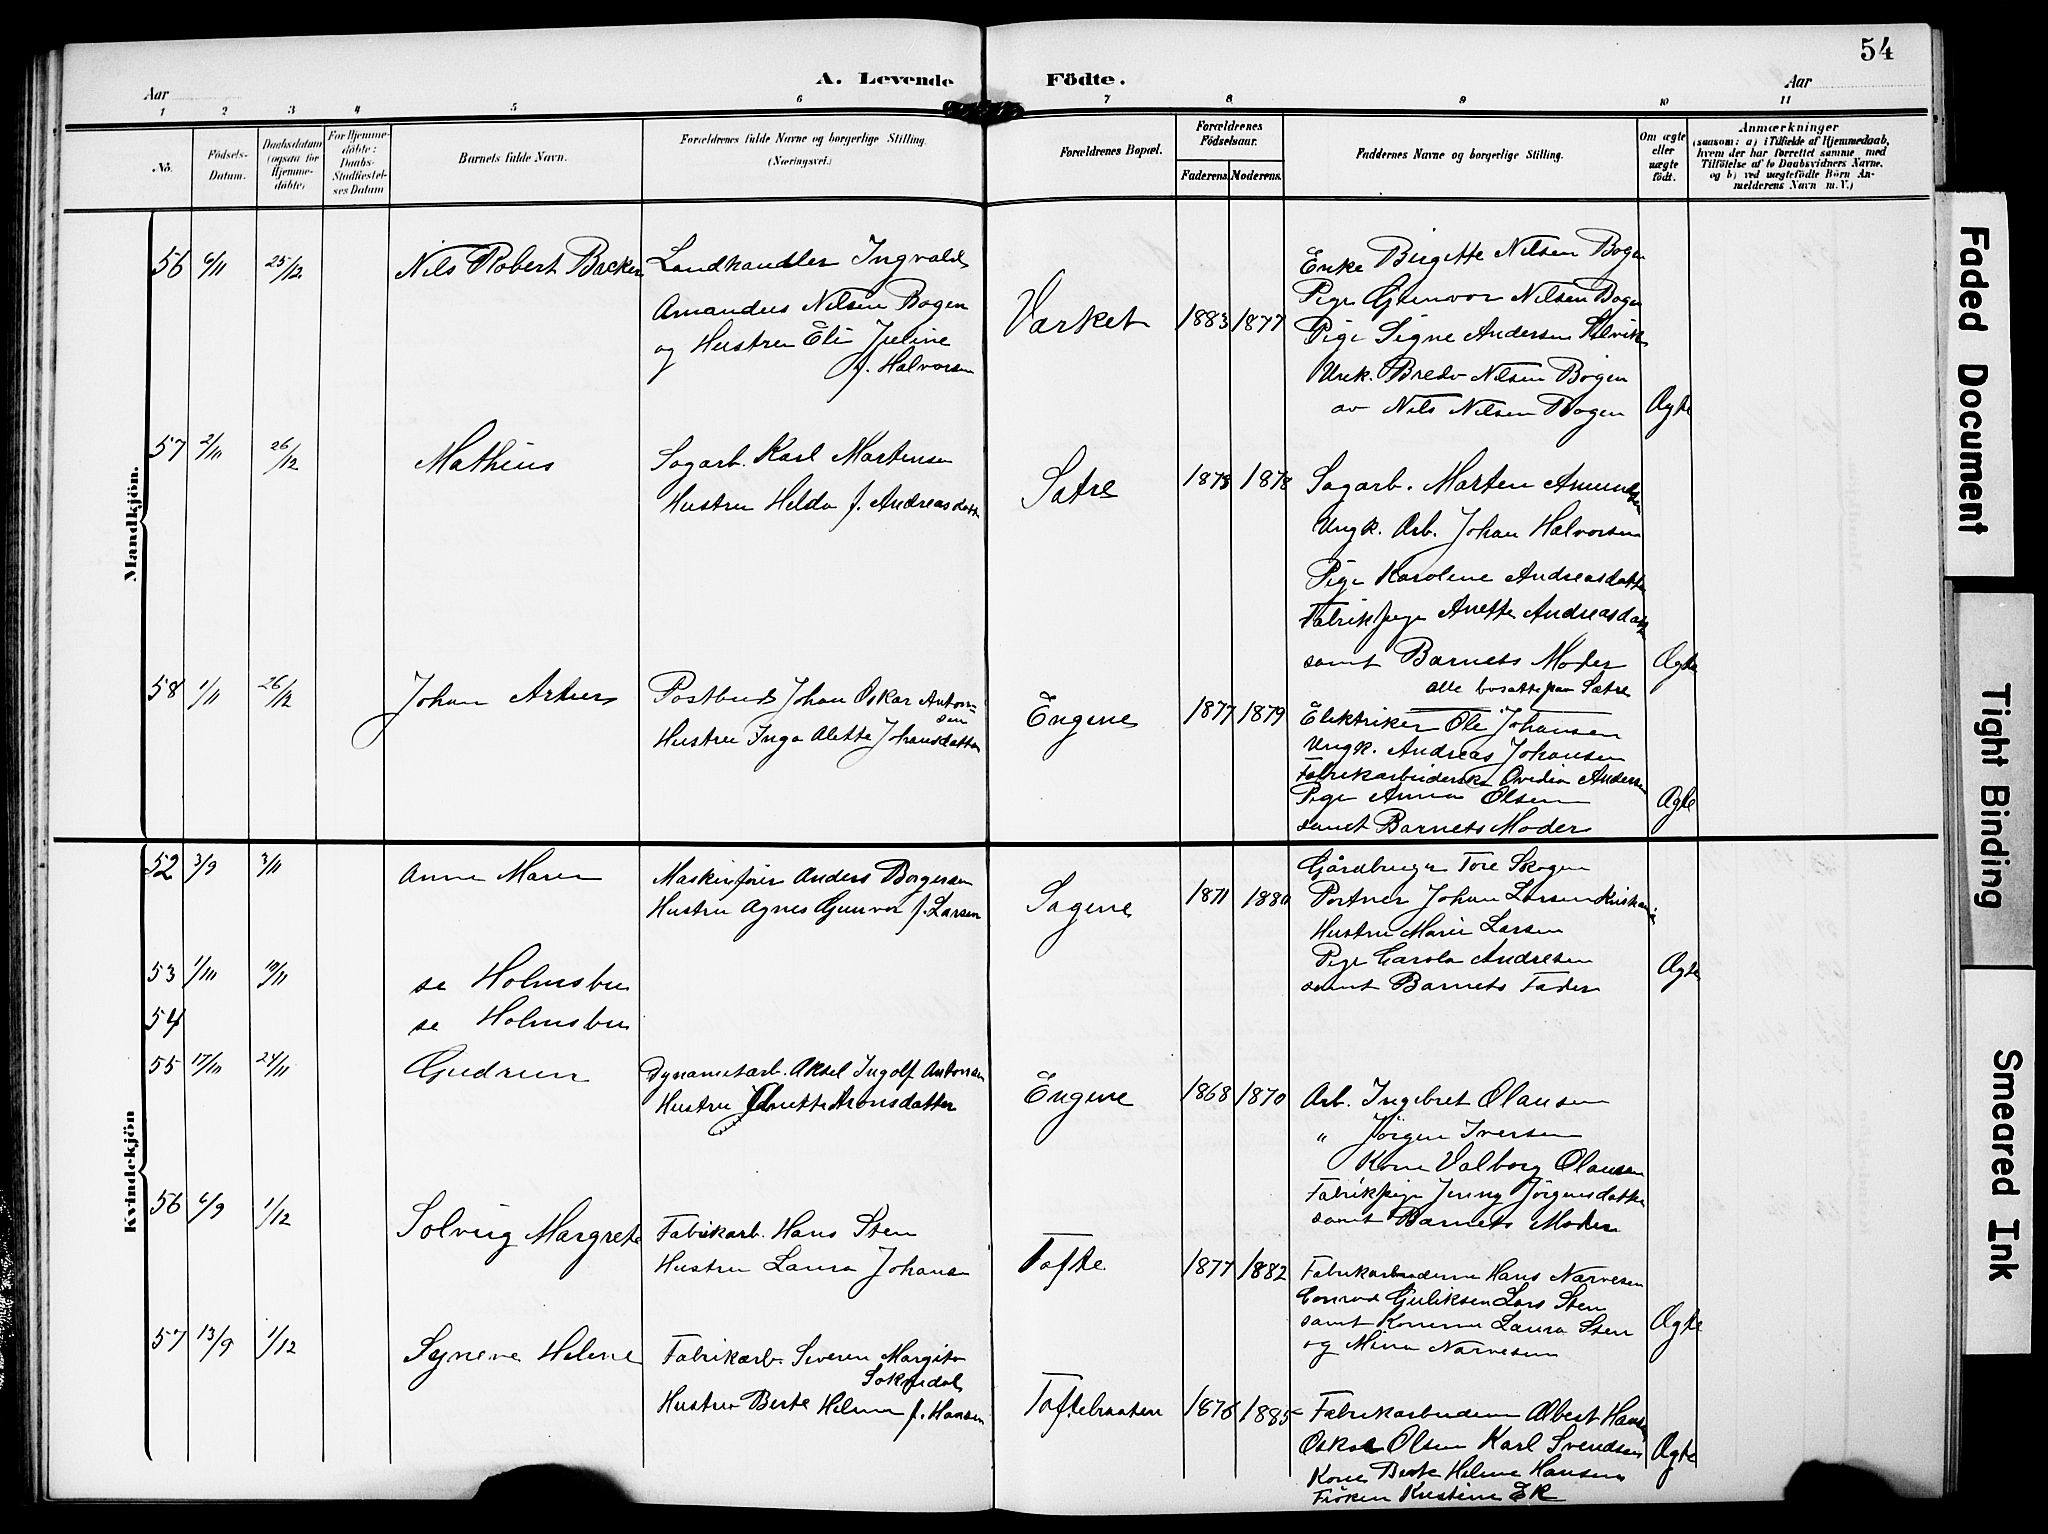 54
A. Levende Födte.
Aar
Aar
1 2 3 4 5 6 7 8 9 10 11
No.
Födsels-
Datum.
Daabsdatum
(ogsaa for
Hjemme-
döbte)
For Hjemme-
döbte:
Daabs-
Stadfæstel-
ses Datum
Barnets fulde Navn.
Forældrenes fulde Navne og borgerlige Stilling.
(Næringsvei.)
Forældrenes Bopæl.
Forældrenes
Födselsaar.
Faderens.
Moderens.
Faddernes Navne og borgerlige Stilling.
Om ægte
eller
uægte
födt.
Anmærkninger
(saasom: a) i Tilfælde af Hjemmedaab,
hvem der har forrettet samme med
Tilföielse af to Daabsvidners Navne,
og b) ved uægtefödte Börn An-
melderens Navn m. V.)
Mandkjön.
56 6/11 25/12 Nils Robert Backer
Landhandler Ingvald
Amandus Nilsen Bogen
og Hustru Eli Juline
f. Halvorsen
Værket 1883 1877
Enke Birgitte Nilsen Bogen
Pige Gunvor Nilsen Bogen
Pige Signe Andersen Selvik
Unk. Bredo Nilsen Bogen
av Nils Nilsen Bogen Ægte
57 2/11 26/12 Mathius
Sagarb. Karl Martinsen
Hustru Helda f. Andreasdatter
Sætre 1878
Sagarb. Morten
Ungk. Arb. Johan Halvorsen
Pige Karoline Andreasdatter
Fabrikpige Anette Andreasdatter
samt Barnets Moder Ægte
alle bosatte paa Sætre
58 1/11 26/12 Johan
Postbud Johan Oskar Anton-
sen
Hustru Inga Alette Johansdatter
Engene 1877 1879
Elektriker Ole Johansen
Ungk. Andreas Johansen
Fabrikarbeiderske Ovedia Andersen
Pige Anna Olsen Ægte
samt Barnets Moder
Kvindekjön
52 3/9 3/11 Anne Maren
Maskinfører Anders Borgersen
Hustru Agnes Gunvor f. Larsen
Sagene 1871 1880
Gårdbruger Tore Skogen
Portner Johan Larsen Kristiania
Hustru Marie Larsen
Pige Carola Andresen
samt Barnets Fader Ægte
53 1/10 10/11 se Holmsbu
54 se Holmsbu
55 17/10 24/11 Gudrun
Dynamitarb. Aksel Ingolf Antonsen
Hustru Aronsdatter
Engene 1868 1870
Arb. Ingebret Olausen
" Jörgen Iversen
Kone Valborg Olausen
Fabrikpige Jenny Jörgensdatter
samt Barnets Moder
56 6/9 1/12 Solveig Margrete
Fabrikarb. Hans Sten
Hustru Laura Johansen
Tofte 1877 1882
Fabrikarbeiderne Hans Narvesen
Conrad Guliksen Lars Sten
samt Konerne Laura Sten
og Mina Narvesen Ægte
57 13/9 1/12 Syneve Helene
Fabrikarb. Severin
Soknedal
Hustru Berte Helene f. Hansen
Toftebraaten 1876 1885
Fabrikarbeiderne Albert Hansen
Oskar Olsen Karl Svendsen
Kone Berte Helene Hansen
Frøken Kristine Ek
Ægte
Faded Document
Tight Binding
Smeared Ink